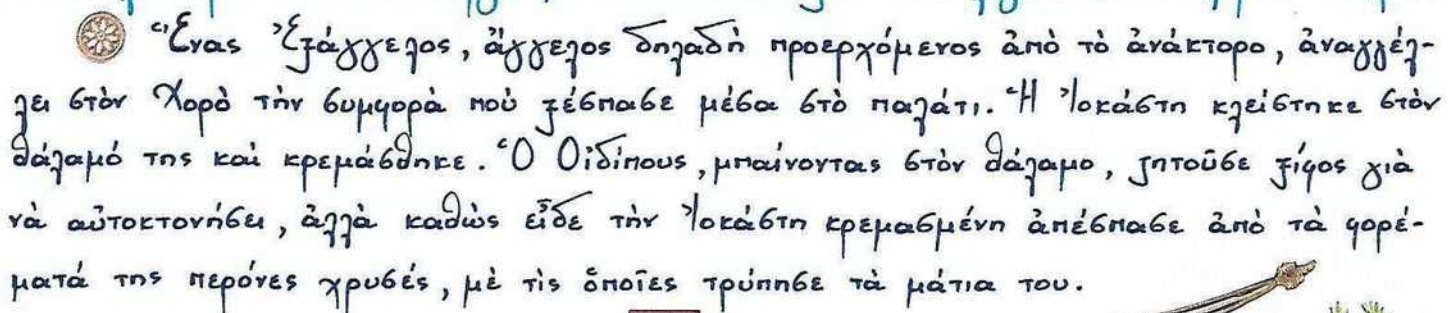 Ἕνας Ἐξάγγελος, ἄγγελος δηλαδὴ προερχόμενος ἀπὸ τὸ ἀνάκτορο, ἀναγγέλ-
λει στὸν Χορὸ τὴν συμφορὰ ποὺ ξέσπασε μέσα στὸ παλάτι. Ἡ Ἰοκάστη κλείστηκε στὸν
θάλαμό της καὶ κρεμάσθηκε. Ὁ Οἰδίπους, μπαίνοντας στὸν θάλαμο, ζητοῦσε ξίφος γιὰ
νὰ αὐτοκτονήσει, ἀλλὰ καθὼς εἶδε τὴν Ἰοκάστη κρεμασμένη ἀπέσπασε ἀπὸ τὰ φορέ-
ματά της περόνες χρυσές, μὲ τὶς ὁποῖες τρύπησε τὰ μάτια του.